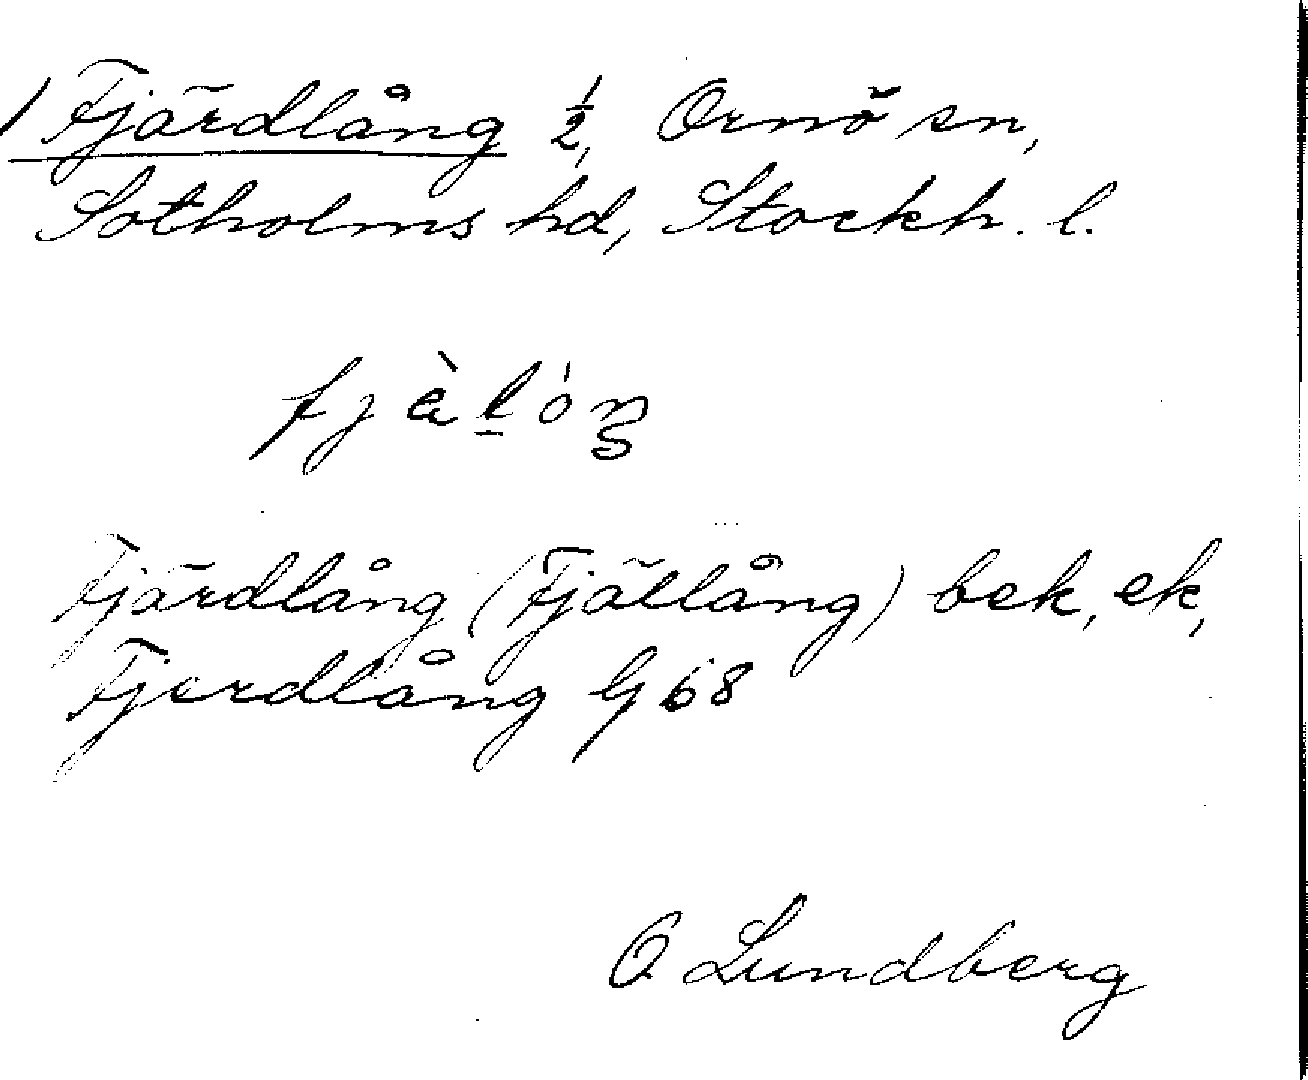 / Fjärdlång ½, Ornö sn,
Sotholms hd, Stockh. l.
Fjärdlång (Fjällång) bek, ek,
Fjerdlång G 68
O Lundberg